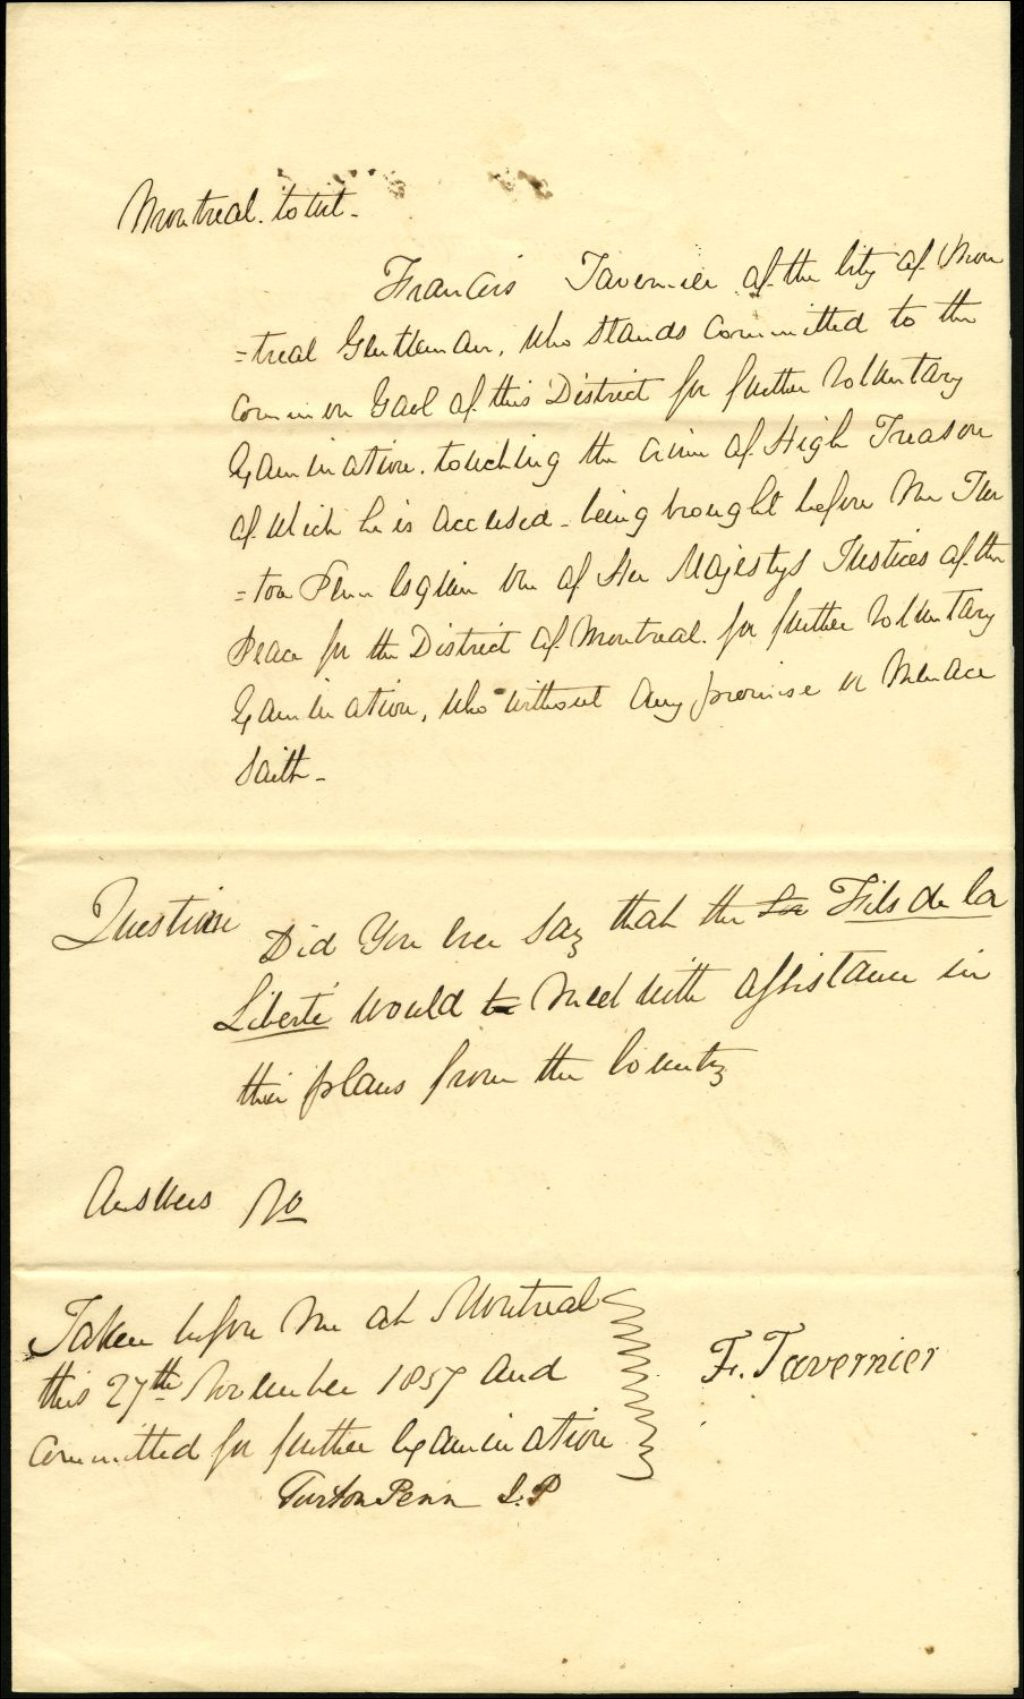 Montreal. to wit -
Francis Tavernier of the City of Mon
=treal Gentleman, who stands committed to the
Common Gaol of this District for further Voluntary
Examination. touching the crime of High Treason
of which he is accused - being brought before me Tur
=ton Penn Esquire one of Her Majestys Justices of the
Peace for the District of Montreal. for further Voluntary
Examination, who without any promise or menace
Saith -
Question Did You ever Say that the Les Fils de la
Liberté would be meet with assistance in
their plans from the Country
Answers No
Taken before me at Montreal
this 27th November 1837 and
Committed for further Examination
F. Tavernier
Turton Penn J.P